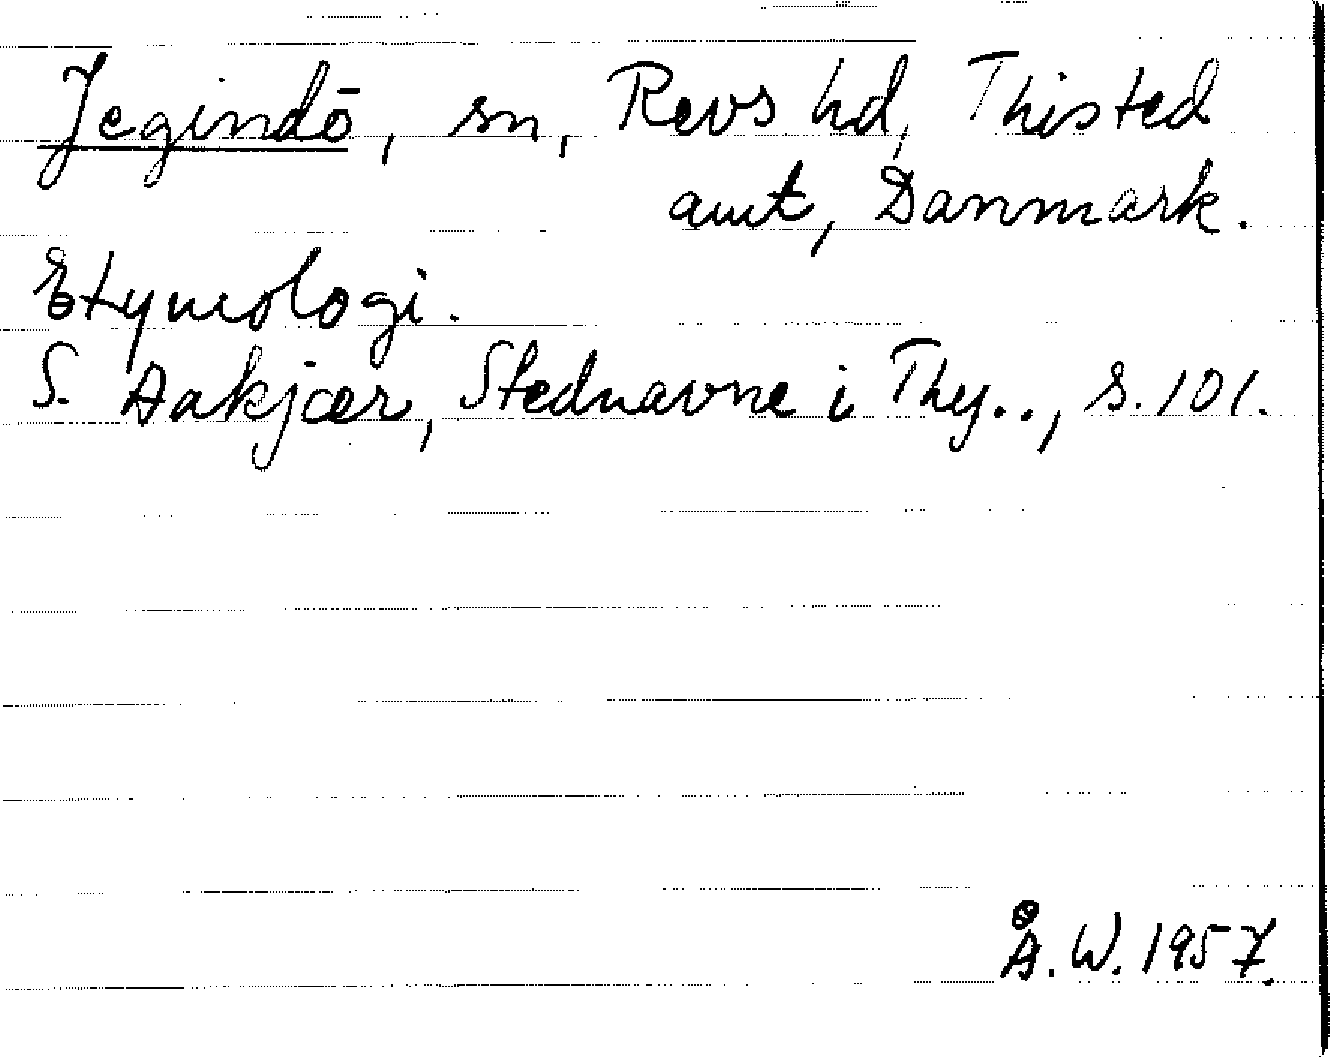 Jegindö, sn, Revs hd, Thisted
amt, Danmark.
Etymologi.
S. Aakjær, Stednavne i Thy.., s. 101.
Å. W. 1957.